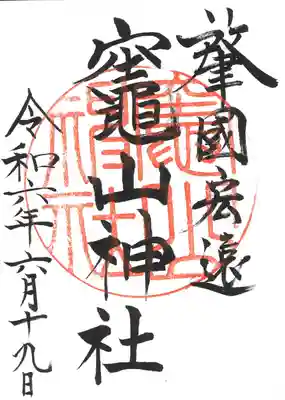 肇國宏遠
竈山神社
令和六年六月十九日
竈山
神社